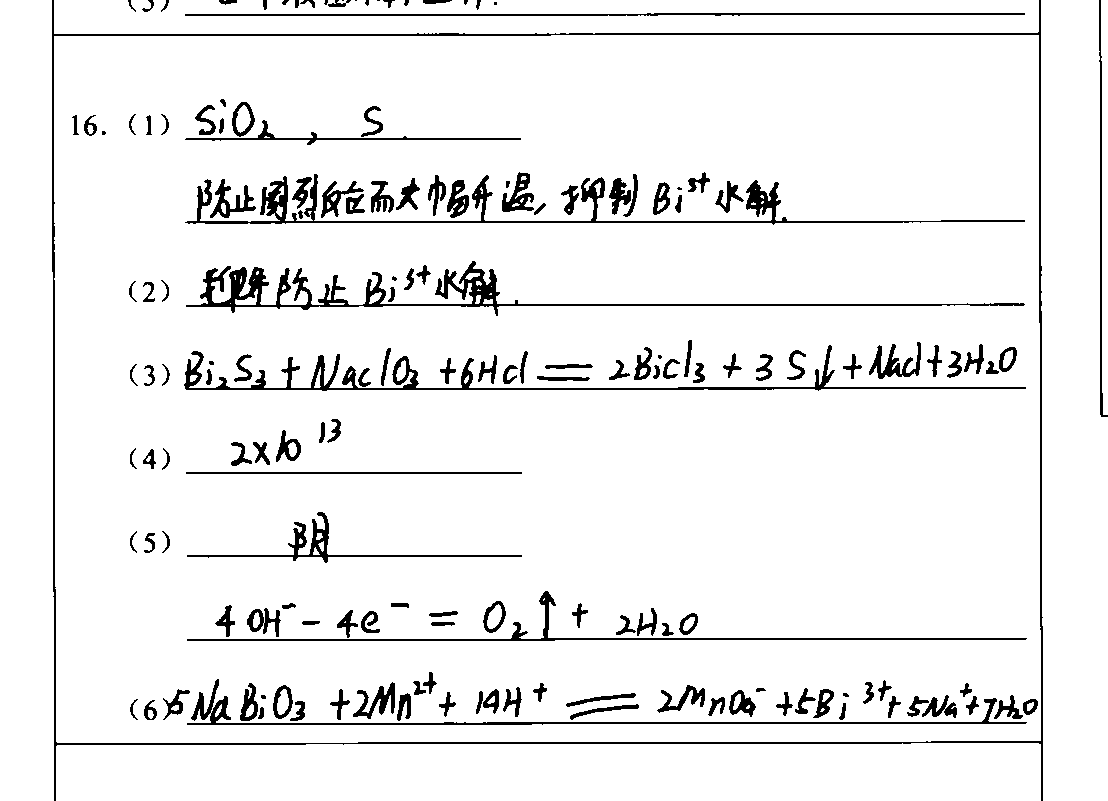 (3)
16.(1) SiO₂ , S .
防止剧烈反应而大幅升温,抑制 Bi³⁺水解.
(2) 防止 Bi³⁺水解.
(3) Bi₂S₃ + NaclO₃ +6Hcl == 2Bicl₃ + 3 S↓+Nacl+3H₂O
(4) 2×10¹³
(5) 阴
4 OH⁻ - 4e⁻ = O₂↑ + 2H₂O
(6) 5NaBiO₃ +2Mn²⁺+ 14H⁺ == 2MnO₄⁻ +5Bi³⁺+5Na⁺+7H₂O